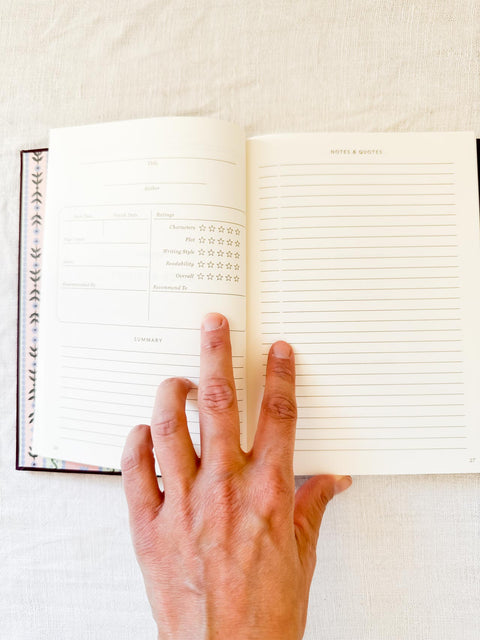 Title
Author
Start Date
Finish Date
Ratings
Characters
Plot
Page Count
Writing Style
Genre
Readability
Overall
Recommended By
Recommend To
SUMMARY
NOTES & QUOTES
27